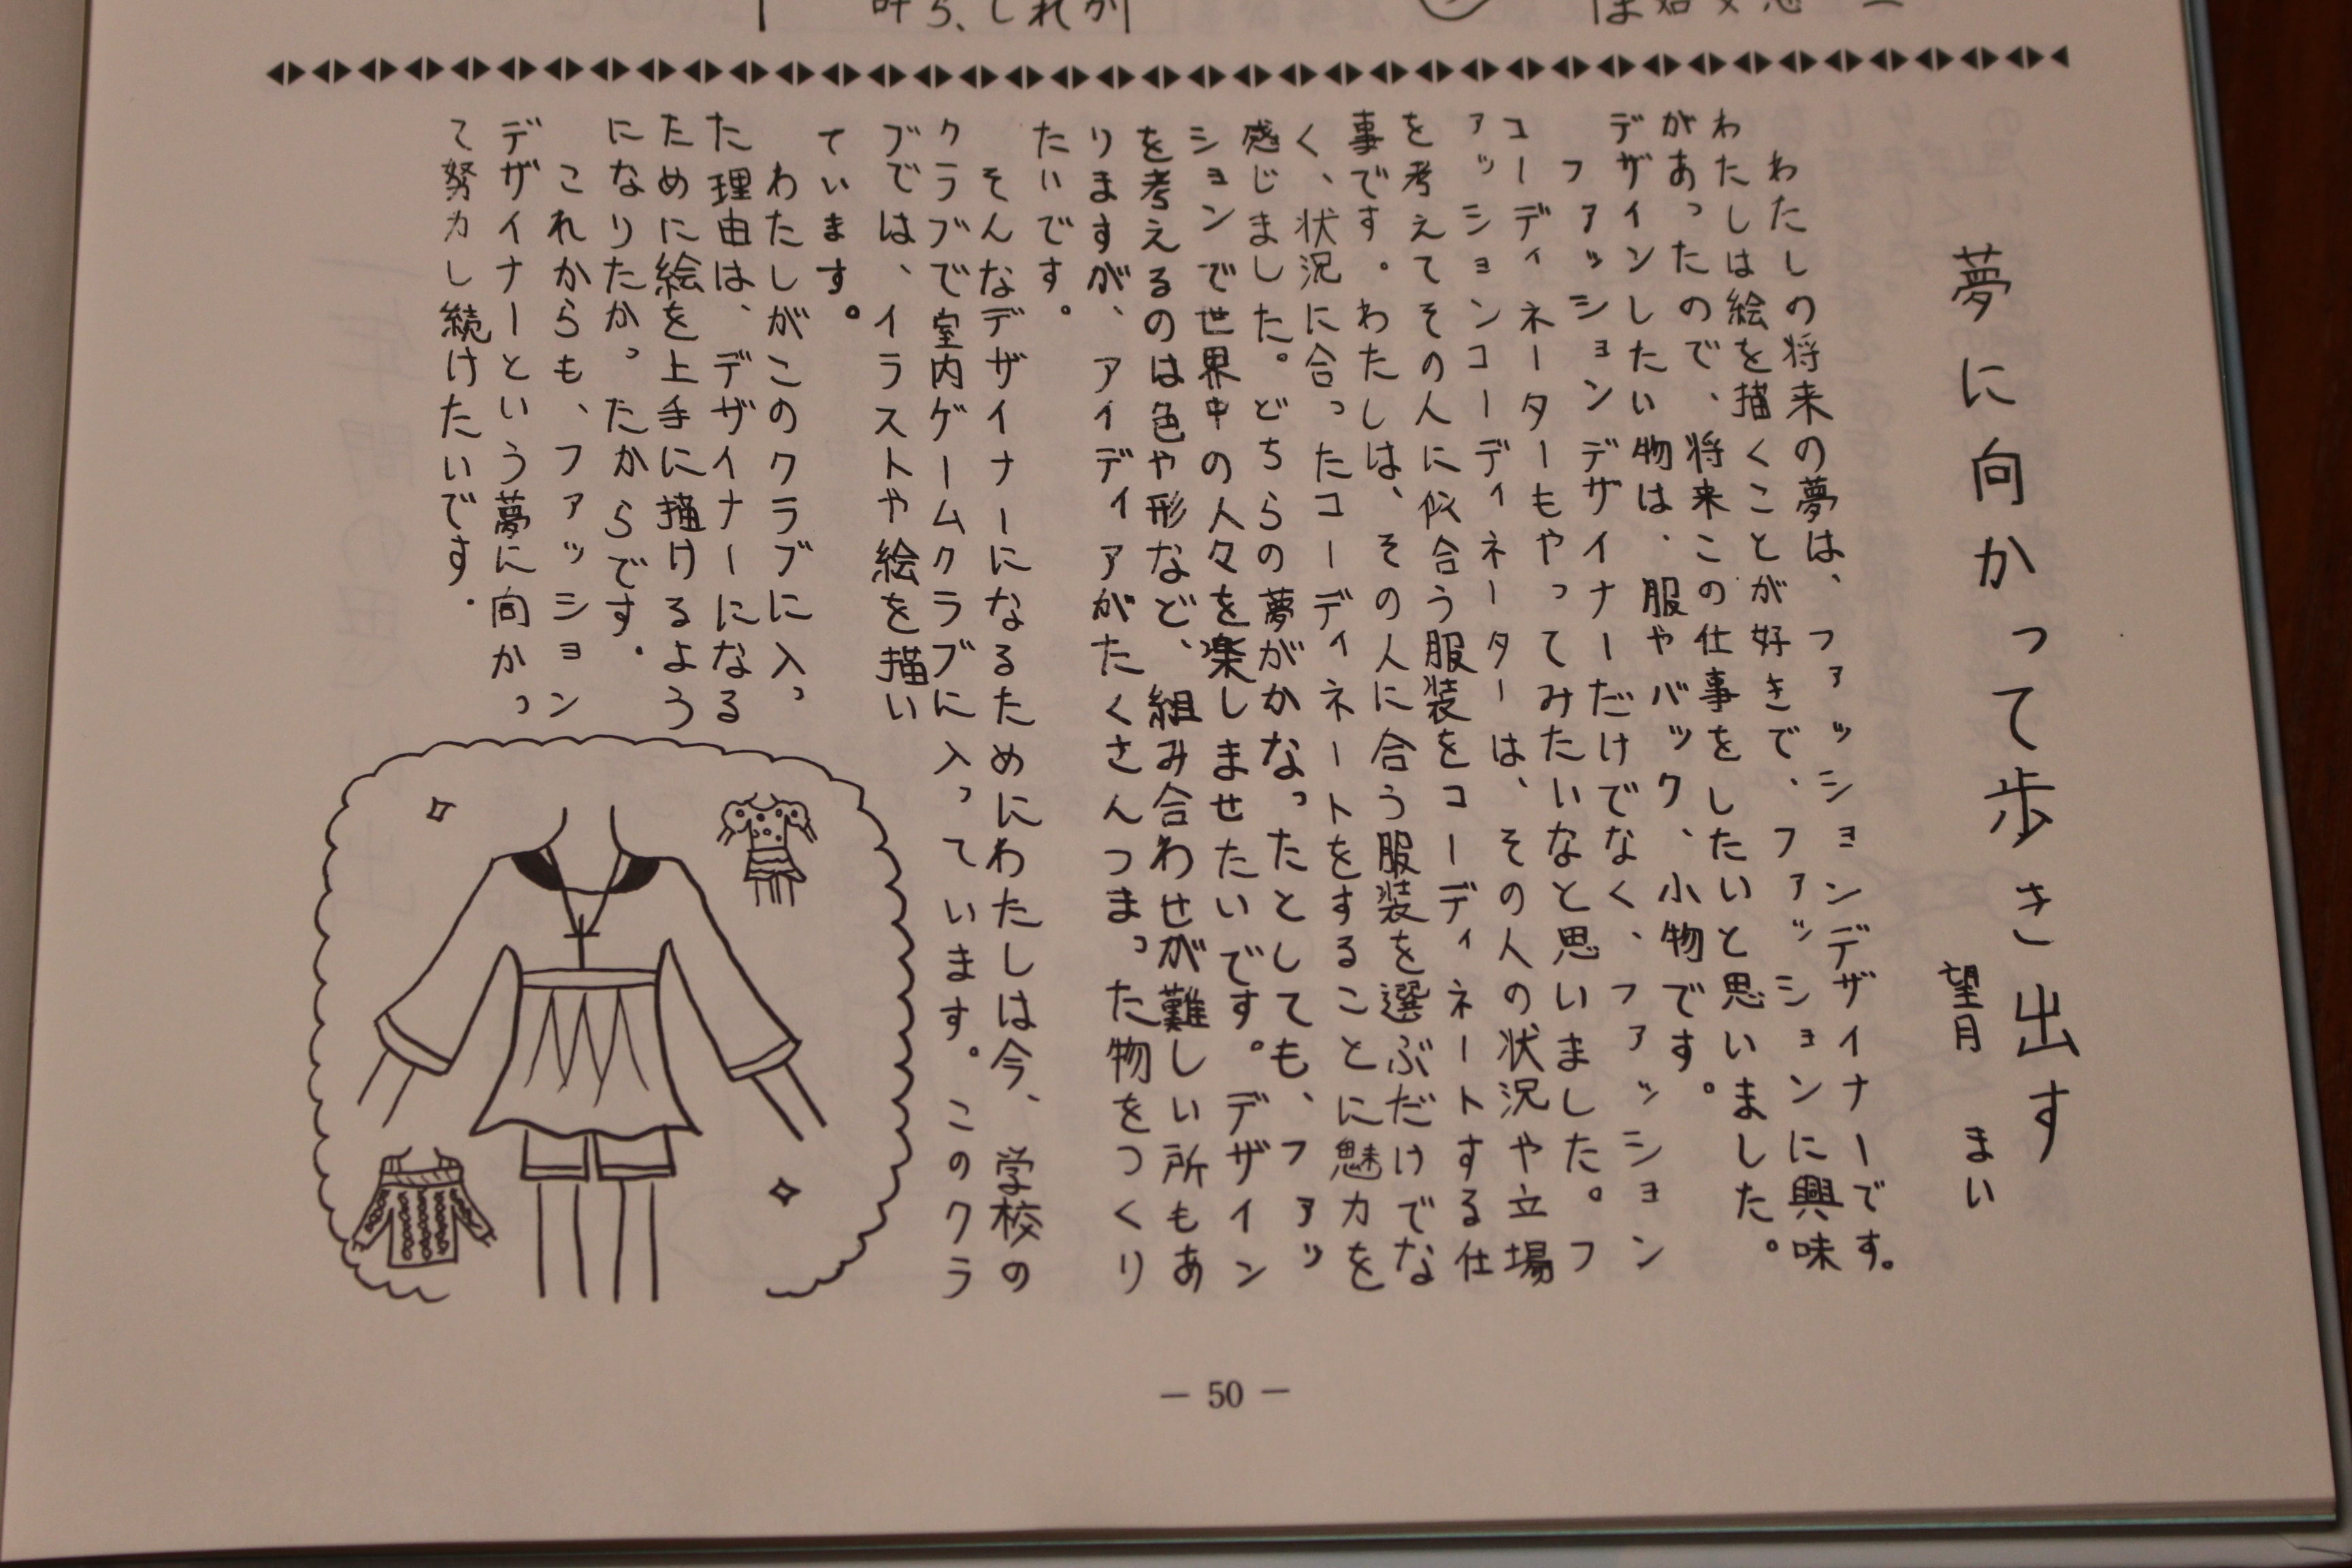 夢に向かって歩き出す
望月 まい
わたしの将来の夢は、ファッションデザイナーです。
わたしは絵を描くことが好きで、ファッションに興味
があったので、将来この仕事をしたいと思いました。
デザインしたい物は、服やバック、小物です。
ファッションデザイナーだけでなく、ファッション
コーディネーターもやってみたいなと思いました。フ
ァッションコーディネーターは、その人の状況や立場
を考えてその人に似合う服装をコーディネートする仕
事です。わたしは、その人に合う服装を選ぶだけでな
く、状況に合ったコーディネートをすることに魅力を
感じました。どちらの夢がかなったとしても、ファッ
ションで世界中の人々を楽しませたいです。デザイン
を考えるのは色や形など、組み合わせが難しい所もあ
りますが、アイディアがたくさんつまった物をつくり
たいです。
そんなデザイナーになるためにわたしは今、学校の
クラブで室内ゲームクラブに入っています。このクラ
ブでは、イラストや絵を描い
ています。
わたしがこのクラブに入っ
た理由は、デザイナーになる
ために絵を上手に描けるよう
になりたかったからです。
これからも、ファッション
デザイナーという夢に向かっ
て努力し続けたいです.
— 50 —